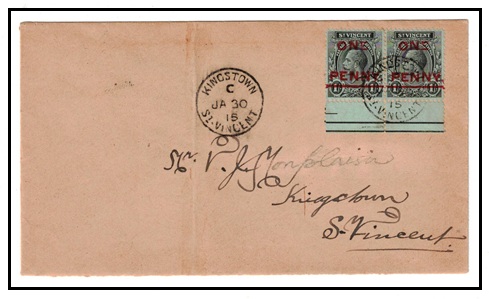 ST VINCENT ST VINCENT
ONE ONE
PENNY PENNY
KINGSTOWN
C
JA 30
15
ST. VINCENT
15
ST. VINCENT
Mr. V. J. Monplaisir
Kingstown
St Vincent.